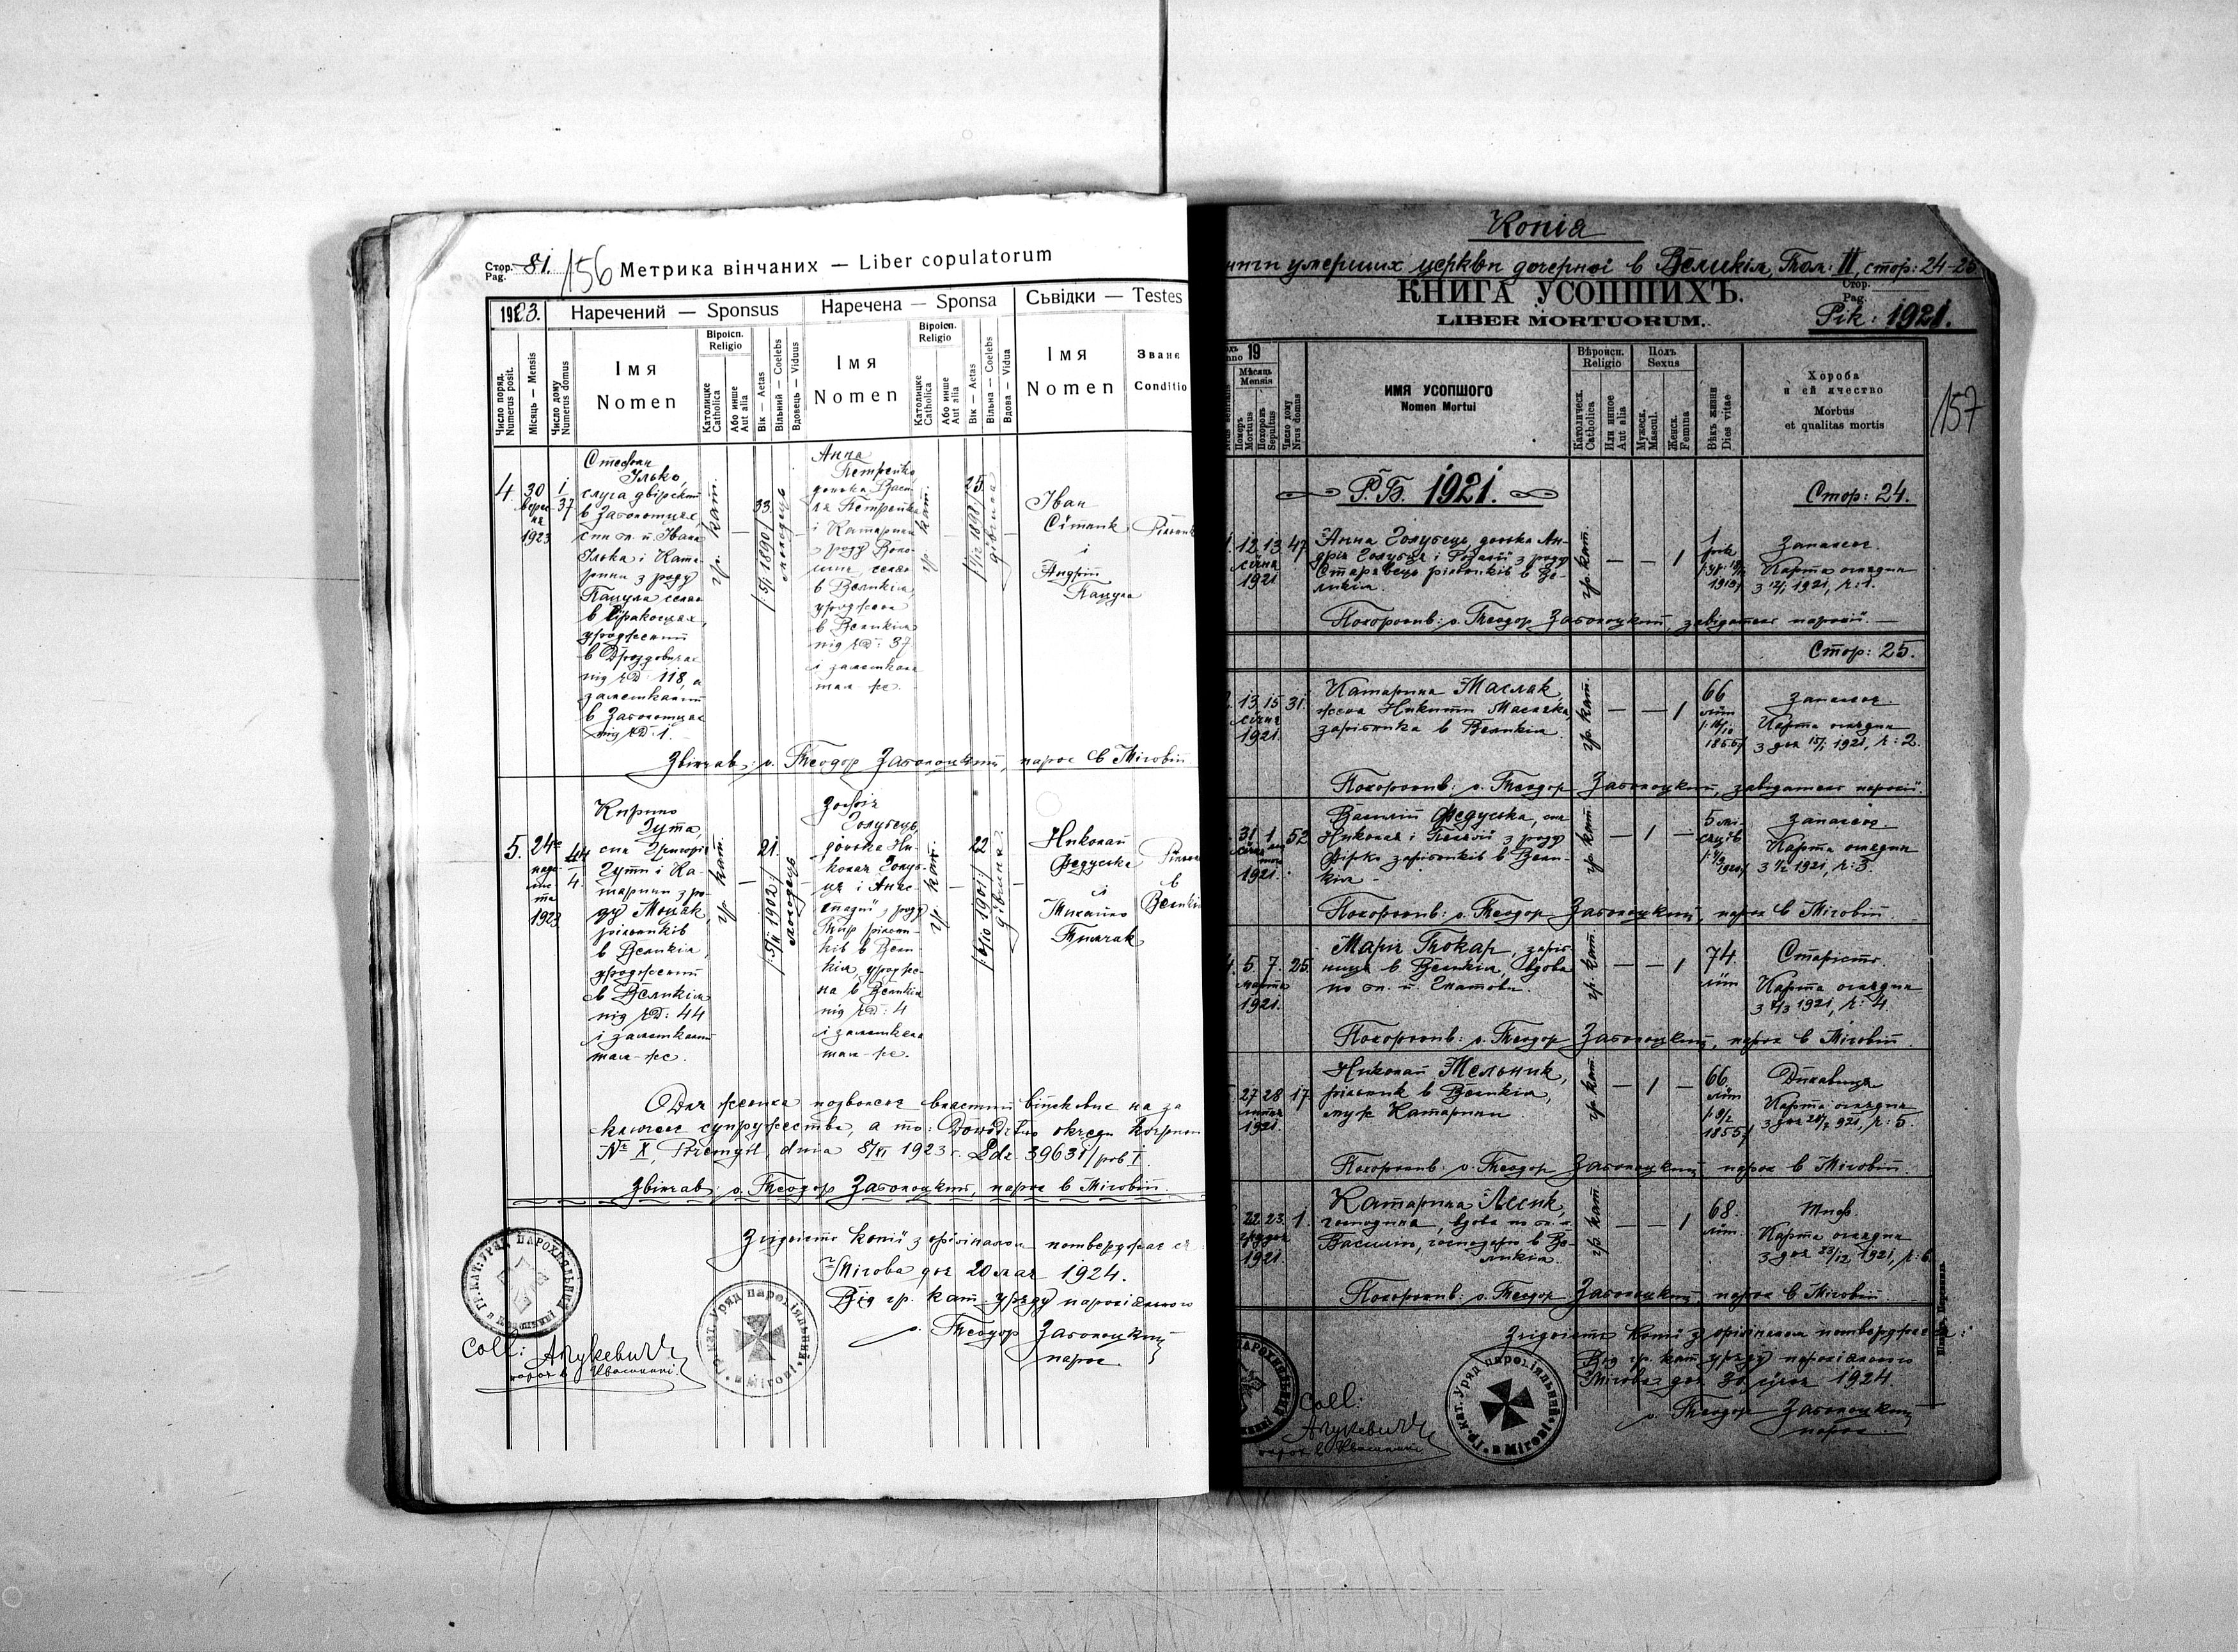 Стор.
Pag.
81.
156
Метрика вінчаних — Liber copulatorum
1923.
Наречений — Sponsus
Наречена — Sponsa
Сьвідки — Testes
Число поряд.
Numerus posit.
Місяць — Mensis
Число дому
Numerus domus
Імя
Nomen
Віроісп.
Religio
Католицке
Catholica
Або инше
Aut alia
Вік — Aetas
Вільний — Coelebs
Вдовець — Viduus
Імя
Nomen
Віроісп.
Religio
Католицке
Catholica
Або инше
Aut alia
Вік — Aetas
Вільна — Coelebs
Вдова — Vidua
Імя
Nomen
Зване
Conditio
4.
30
вересня
1923
1
37
Стефан
Ілько,
слуга двірский
в Заболотцях,
син бл. п. Івана
Ілька і Ката-
рини з роду
Пацула селян
в Дроздовичах
під чд 118, а
замешканий
в Заболотцях
під чд. 1.
гр. кат.
33.
1890
молодець
Анна
Петрейко
донька Васи-
ля Петрейка
і Катарини
з роду
селян
в Великім
уроджена
в Великім
під чд: 37
і замешкала
там-же.
гр. кат.
25
1898
дівчина
Іван
Сітник
і
Андрій
Пацула
Рільник
Звінчав: о. Теодор Заболоцкий, парох в Міговій.
5.
24
падо-
листа
1923
44
4.
Кирило
Гута,
син Григорія
Гути і Ка-
тарини з ро-
ду Моцак,
рільників
в Великім,
уроджений
в Великім
під чд: 44
і замешкалий
там-же.
гр. кат.
21.
1902
молодець
Зофія
Голубець,
донька Ни-
колая Голуб-
ця і Анас-
тазиї з роду
Тир рільни-
ків в Вели-
кім, уродже-
на в Великім
під чд: 4
і замешкала
там-же.
гр. кат.
22
1901
дівчина
Николай
Федуська
і
Михайло
Тимчак
Рільники
в
Великім
супружества, а то: Dowództwo okręgu korpusu
Nr X, Przemyśl, dnia 8/XI 1923 r. Ldz. 39631/pob I.
Звінчав: о. Теодор Заболоцкий, парох в Міговій.
Згідність копії з оріґіналом потверджає ся:
Мігова дня 20 мая 1924.
Від гр. кат. уряду парохіяльного
о. Теодор Заболоцкий
парох.
Гр. кат. Уряд парохіяльний в Miгові
Coll:
Копія
книги умерших церкви дочерної в Великім, Том: II, стор: 24-25
КНИГА УСОПШИХЪ.
LIBER MORTUORUM.
Стор.
Pag.
Рік: 1921.
157
19
Мѣсяцъ
Mensis
Померъ
Mortuus
Похоронъ
Sepultus
Число дому
Nrus domus
ИМЯ УСОПШОГО
Nomen Mortui
Вѣроисп.
Religio
Католическ.
Catholica
Или инное
Aut alia
Полъ
Sexus
Мужеск.
Mascul.
Женск.
Femina
Вѣкъ жизни
Dies vitae
Хороба
и єй ячество
Morbus
et qualitas mortis
Р. Б. 1921.
Стор: 24.
1. 12 13 47
січня
1921
Анна Голубець, донька Ан-
дрія Голубця і Розалії з роду
Старавець рільників в Ве-
ликім.
гр. кат.
1
1
рік
1919
Запалєнє.
Карта оглядин
з 12/1 1921, ч: 1.
Похоронив: о. Теодор Заболоцкий, завідатель парохії. —
Стор: 25.
2. 13 15 31.
січня
1921.
Катарина Маслак,
жена Никити Масляка
зарібника в Великім.
гр. кат.
1
66
літ
1855
Запалєнє.
Карта оглядин
з дня 15/1 1921, ч: 2.
Похоронив: о. Теодор Заболоцкий, завідатель парохії.
31 1 52
січня
1921.
Василий Федуська, син
Николая і Пелагії з роду
Фірко зарібників в Вели-
кім —
гр. кат.
1
5 мі-
сяців
1920
Запалєнє.
Карта оглядин
з 1/2 1921, ч: 3.
Похоронив: о. Теодор Заболоцкий, парох в Міговій.
4. 5 7. 25.
марта
1921.
Марія Токар, заріб-
ниця в Великім, вдова
по бл. п. Гнатови.
гр. кат.
1
74
літ
Старість.
Карта оглядин
з 7/3 1921, ч: 4.
Похоронив: о. Теодор Заболоцкий, парох в Міговій.
27 28 17
липня
1921.
Николай Мельник,
рільник в Великім,
муж Катарини.
гр. кат.
1
66.
літ
1855
Дихавиця
Карта оглядин
з дня 28/7 921, ч: 5.
Похоронив: о. Теодор Заболоцкий, парох в Міговій.
22 23. 1.
грудня
1921.
Катарина Лесик,
господиня, вдова по бл. п.
Василию, господарю в Ве-
ликім.
гр. кат
1
68.
літ.
Тиф.
Карта оглядин
з дня 23/12 1921, ч: 6.
Похоронив: о. Теодор Заболоцкий, парох в Міговій.
Згідність копії з оріґіналом потверджає ся:
Від гр. кат. уряду парохіяльного
Мігова дня 30 січня 1924
о. Теодор Заболоцкий
парох.
Гр. кат. Уряд парохіяльний в Miгові
Coll: